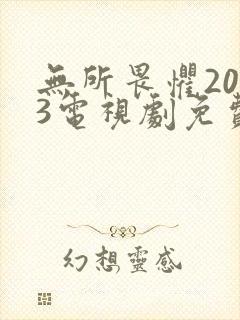 無所畏懼20
3電視劇免費
幻想靈感